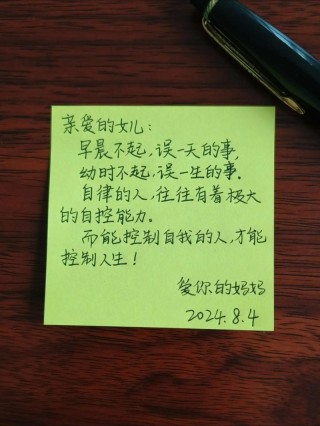 亲爱的女儿：
早晨不起，误一天的事，
幼时不起，误一生的事。
自律的人，往往有着极大
的自控能力。
而能控制自我的人，才能
控制人生！
爱你的妈妈
2024.8.4